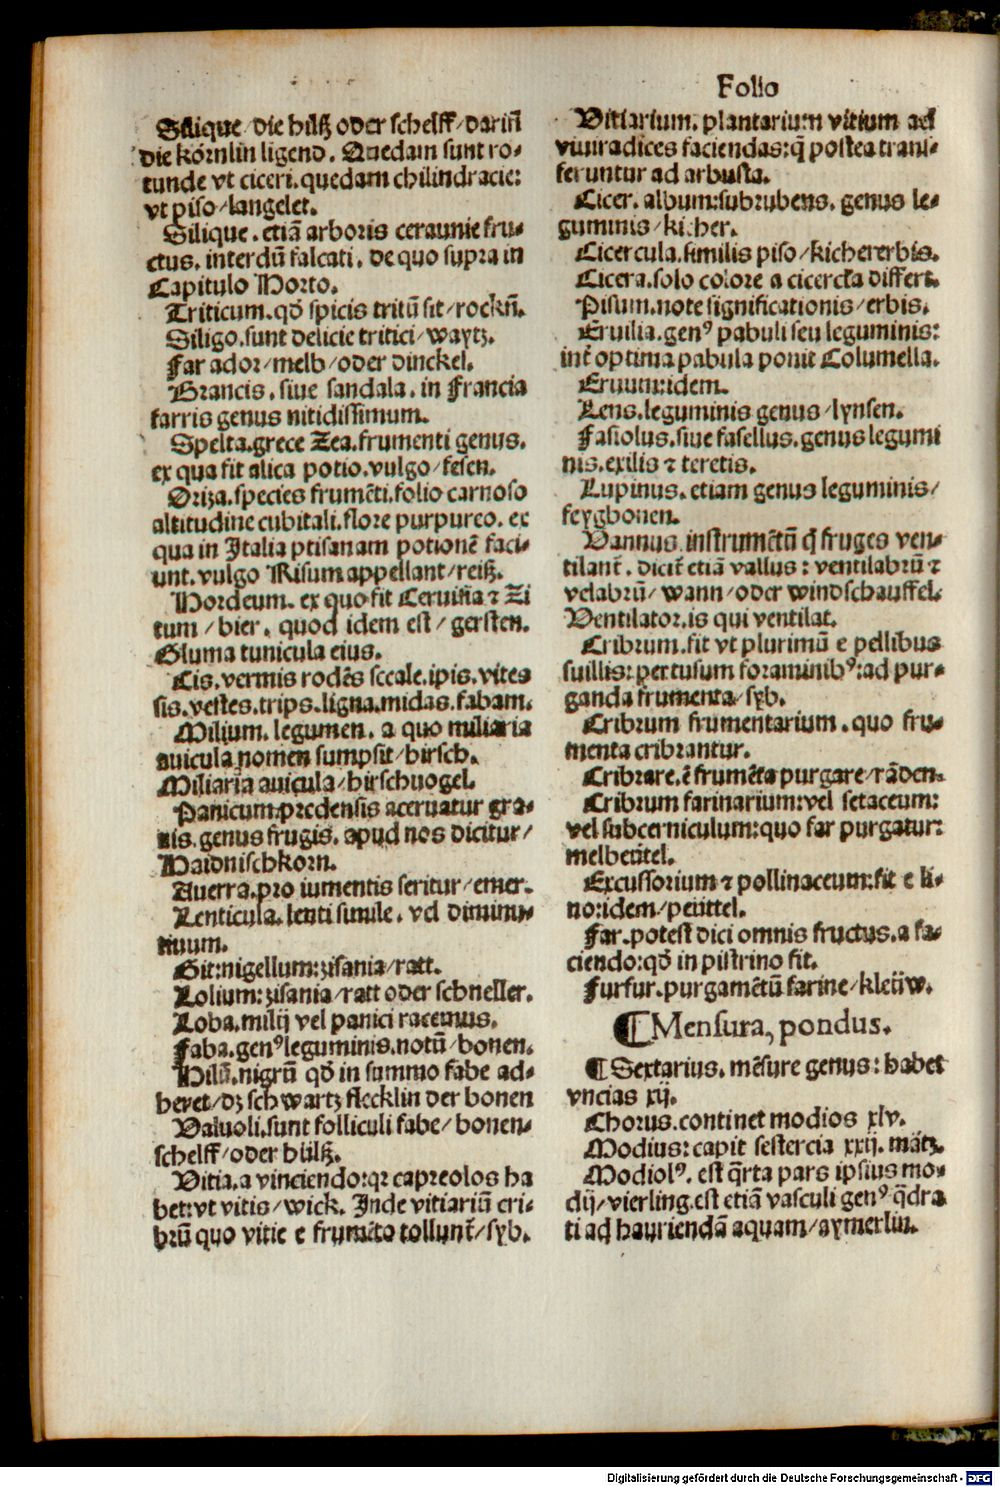 Folio
Silique/die hülß oder schelff/darin̄
die kórnlin ligend. Quedam sunt ro-
tunde vt ciceri. quedam chilindracie:
vt piso/langelet.
Silique. etiā arboris ceraunie fru-
ctus. interdū falcati. de quo supra in
Capitulo Horto.
Triticum. qđ spicis tritū sit/rockn̄.
Siligo. sunt delicie tritici/waytz.
Far ador/melb/oder dinckel.
Brancis. siue sandala. in Francia
farris genus nitidissimum.
Spelta. grece Zea. frumenti genus.
ex qua fit alica potio. vulgo/fesen.
Oriza. species frumēti. folio carnoso
altitudine cubitali. flore purpureo. ex
qua in Italia ptisanam potionē faci-
unt. vulgo Risum appellant/reiß.
Hordeum. ex quo fit Ceruisia ⁊ Zi
tum/bier. quod idem est/gersten.
Gluma tunicula eius.
Cis. vermis rodēs secale. ipis. vites
sis. vestes. trips. ligna. midas. fabam.
Milium. legumen. a quo miliaria
auicula nomen sumpsit/hirsch.
Miliaria auicula/hirschuogel.
Panicum. predensis aceruatur gra-
nis. genus frugis. apud nos dicitur/
Haidnischkorn.
Auerra. pro iumentis seritur/emer.
Lenticula. lenti simile. vel diminu-
tiuum.
Git: nigellum: zisania/ratt.
Lolium: zisania/ratt oder schneller.
Loba. milij vel panici racemus.
Faba. genꝰ leguminis. notū/bonen.
Hilū. nigrū qđ in summo fabe ad-
heret/dz schwartz flecklin der bonen
Valuoli. sunt folliculi fabe/bonen-
schelff/oder hülß.
Vitia. a vinciendo: qꝛ capreolos ha
bet: vt vitis/wick. Inde vitiariū cri-
brū quo vitie e frumēto tollunt̄/syb.
Vitiarium. plantarium vitium ad
viuiradices faciendas: q̄ postea trans-
feruntur ad arbusta.
Cicer. album: subrubens. genus le-
guminis/kicher.
Cicercula. similis piso/kichererbis.
Cicera. solo colore a cicercła differt.
Pisum. note significationis/erbis.
Eruilia. genꝰ pabuli seu leguminis:
int̄ optima pabula ponit Columella.
Eruum: idem.
Lens. leguminis genus/lynsen.
Fasiolus. siue fasellus. genus legumi
nis. exilis ⁊ teretis.
Lupinus. etiam genus leguminis/
feygbonen.
Vannus. instrumētū q̄ fruges ven-
tilant̄. dicit̄ etiā vallus: ventilabrū ⁊
velabrū/wann/oder windschauffel.
Ventilator. is qui ventilat.
Cribrum. fit vt plurimū e pellibus
suillis: pertusum foraminibꝰ: ad pur-
ganda frumenta/syb.
Cribrum frumentarium. quo fru-
menta cribrantur.
Cribrare. ē frumēta purgare/rāden.
Cribrum farinarium: vel setaceum:
vel subcerniculum: quo far purgatur:
melbeütel.
Excussorium ⁊ pollinaceum: fit e li-
no: idem/peüttel.
Far. potest dici omnis fructus. a fa-
ciendo: qđ in pistrino fit.
Furfur. purgamētū farine/kleüw.
¶Mensura, pondus.
¶Sextarius. mēsure genus: habet
vncias xij.
Chorus. continet modios xlv.
Modius: capit sestercia xxij. mātz.
Modiolꝰ. est q̄rta pars ipsius mo-
dij/vierling. est etiā vasculi genꝰ q̄dra
ti ad hauriendā aquam/aymerlin.
Digitalisierung gefördert durch die Deutsche Forschungsgemeinschaft - DFG